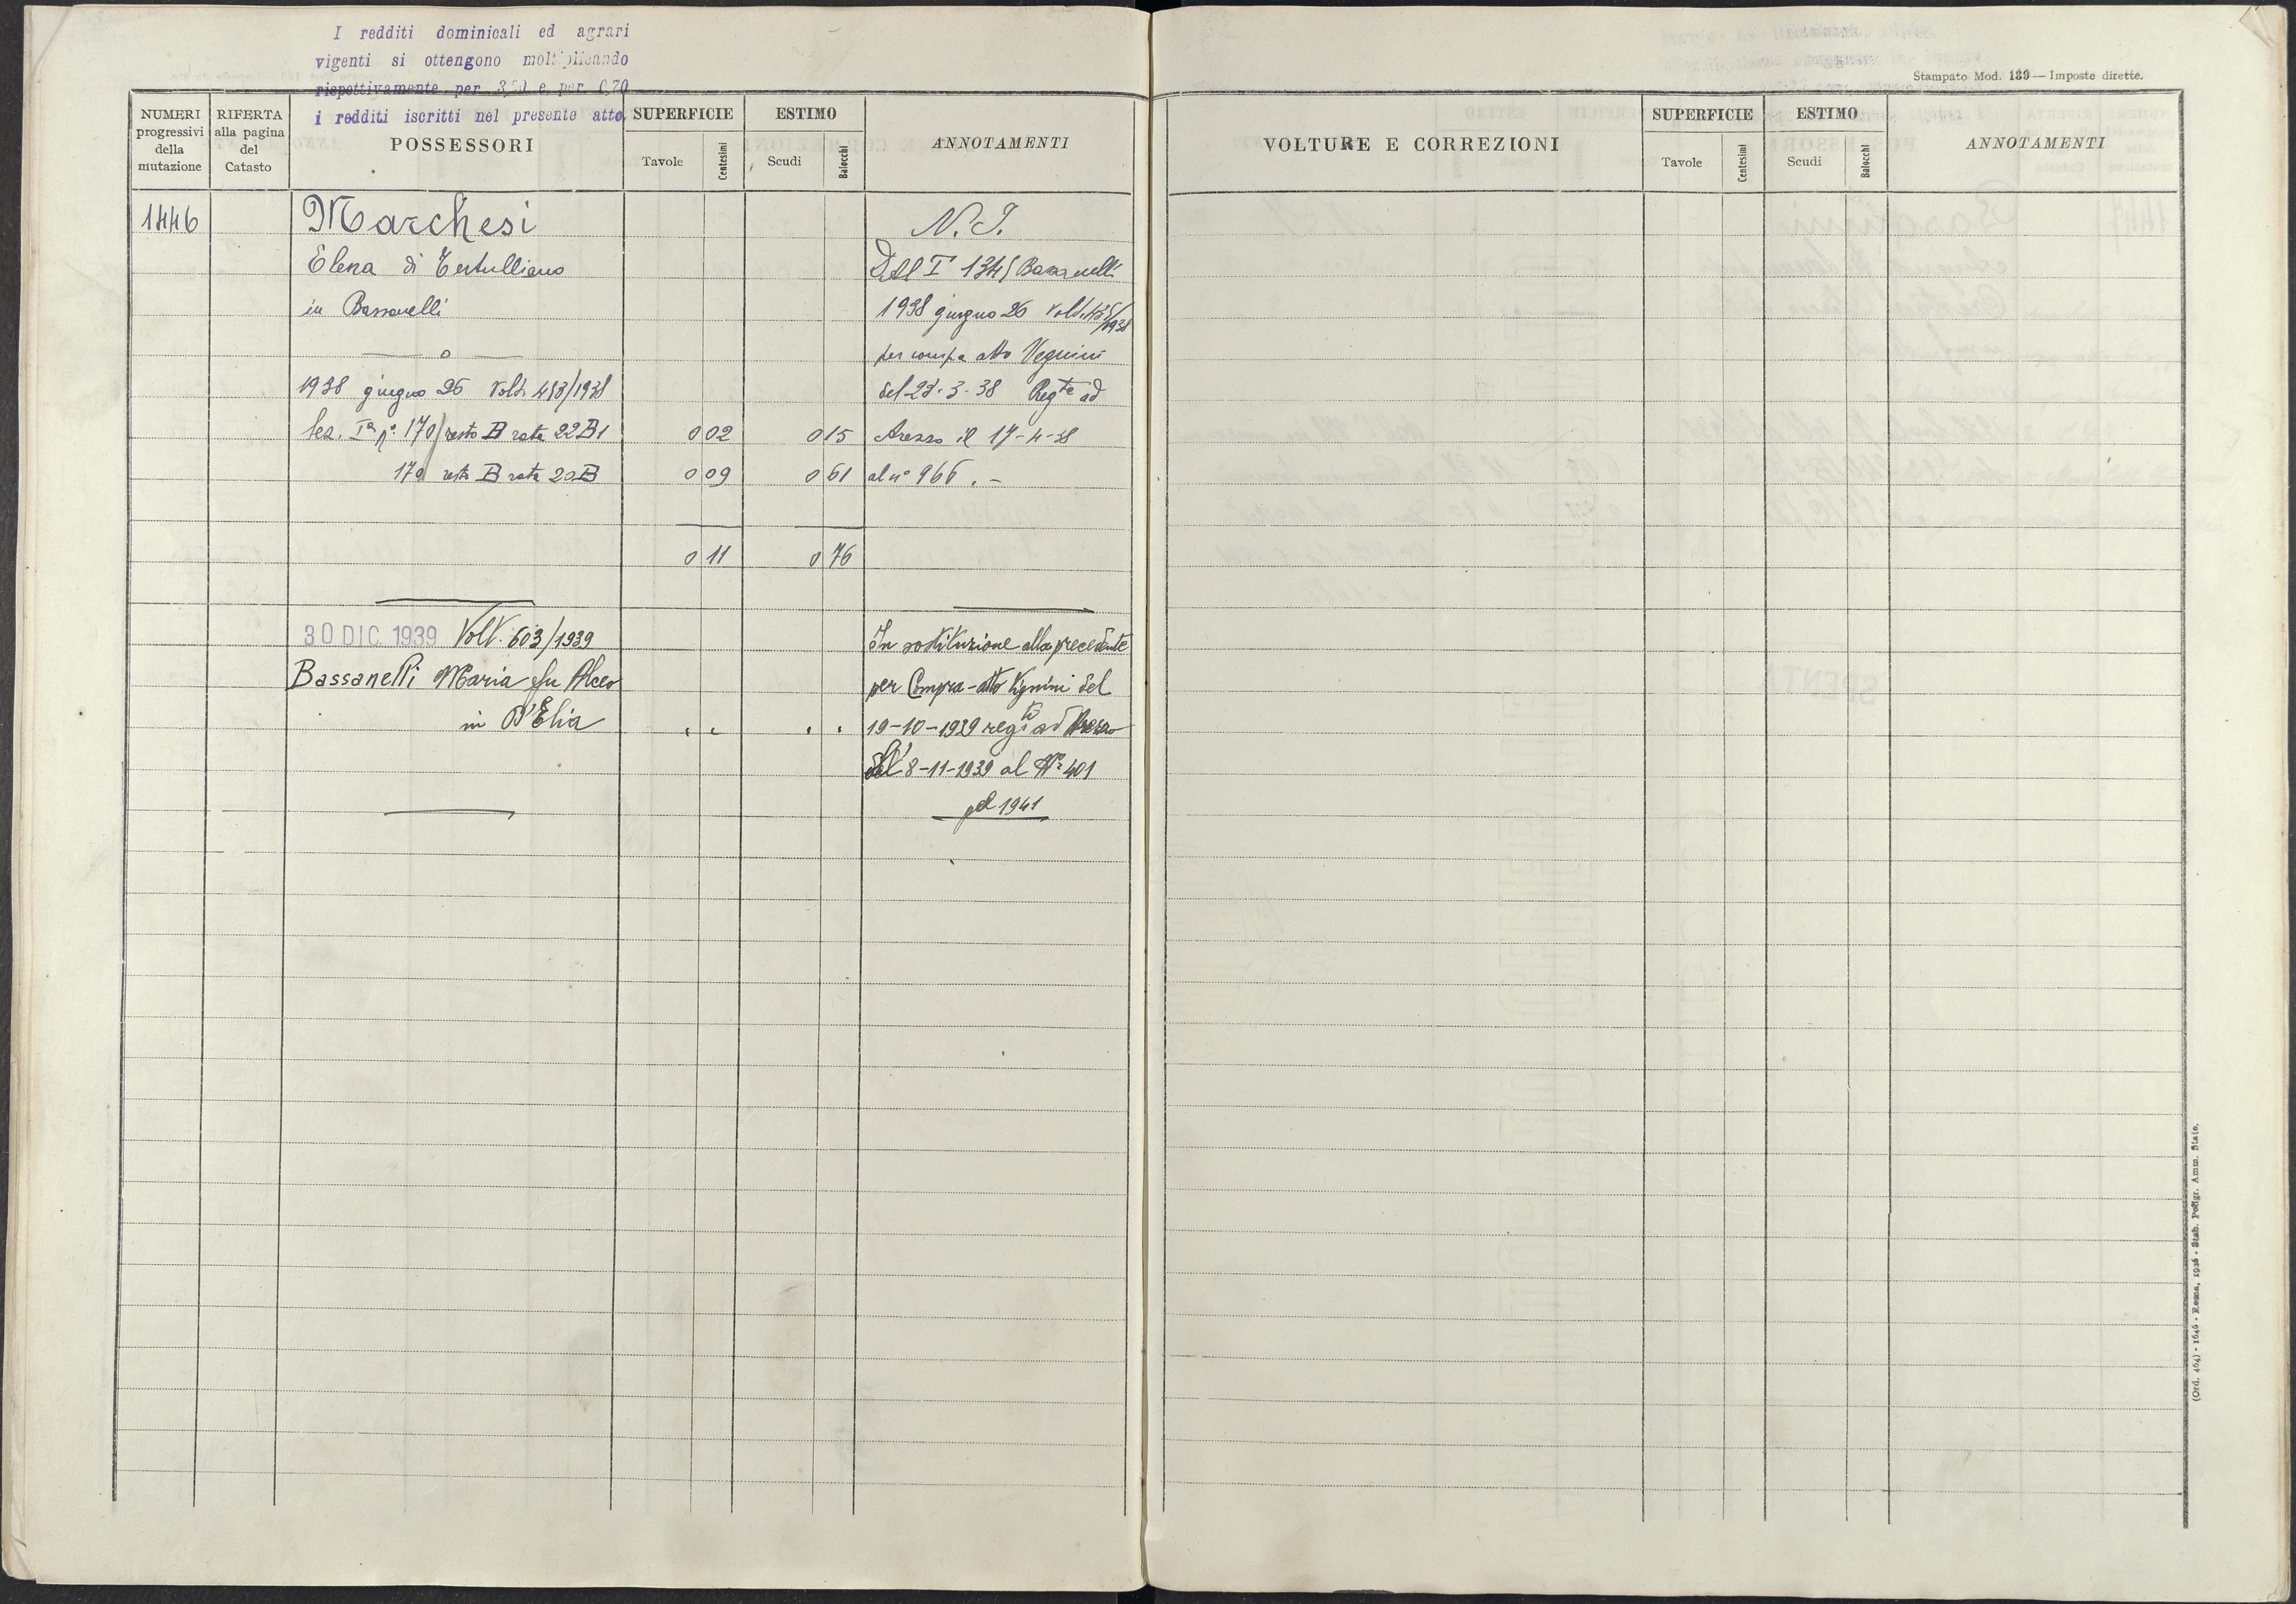 I redditi dominicali ed agrari
vigenti si ottengono moltiplicando
rispettivamente per 3,20 e per 0,70
i redditi iscritti nel presente atto
NUMERI
progressivi
della
mutazione
RIFERTA
alla pagina
del
Catasto
POSSESSORI
SUPERFICIE
Tavole
Centesimi
ESTIMO
Scudi
Baiocchi
ANNOTAMENTI
1446
Marchesi
N. I.
Elena di Tertulliano
Dal I 1345 Bassanelli
in Bassanelli
1938 giugno 26 Volt.
/1938
o
per compa atto Vegnini
1938 giugno 26 Volt. 483/1938
del 22-3-38 Regto ad
Sez. Ia no. 170/ resto B rata 22B1 0 02 0 15
Arezzo il 17-4-38
170 resto B rata 20B 0 09 0 61
al n° 966 . –
0 11 0 76
30 DIC. 1939 Volt. 603/1939
In sostituzione alla precedente
Bassanelli Maria fu Alceo
per Compra-atto Vignini del
in D'Elia
19-10-1939 regto ad Arezzo
8-11-1939 al No 401
pel 1941
Stampato Mod. 139 — Imposte dirette.
VOLTURE E CORREZIONI
SUPERFICIE
Tavole
Centesimi
ESTIMO
Scudi
Baiocchi
ANNOTAMENTI
(Ord. 464) - 1646 - Roma, 1936 - Stab. Poligr. Amm. Stato.